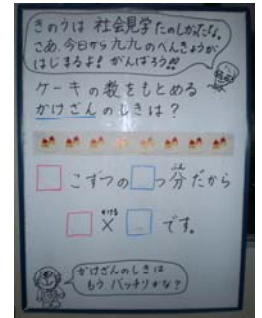 きのうは 社会見学 たのしかったな。
さあ、今日から 九九 のべんきょうが
はじまるよ! がんばろう!!
ケーキの数をもとめる
かけざんのしきは?
□こずつの□つ分だから
ぶん
かける
□×□です。
かけざんのしきは
もう バッチリかな?